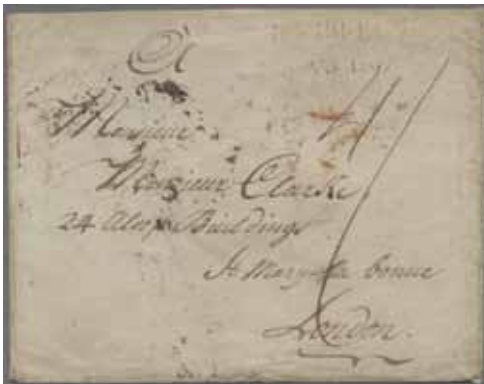 A
Monsieur
Monsieur Clarke
24 Alsop Buildings
St Mary la bonne
London.